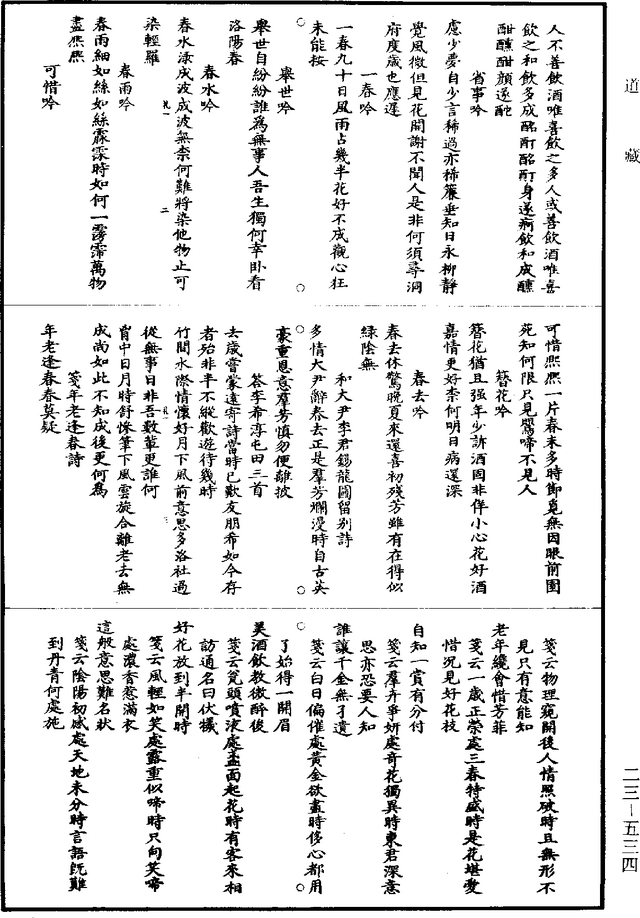 道藏
人不善飲酒唯喜飲之多人或善飲酒唯喜
飲之和飲多成酩酊酩酊身遂病飲和成醺
酣醺酣顏遂酡
省事吟
慮少夢自少言稀過亦稀簾垂知日永柳靜
覺風微但見花開謝不聞人是非何須尋洞
府度歲也應遲
一春吟
一春九十日風雨占幾半花好不成觀心狂
未能按
舉世吟
舉世自紛紛誰為無事人吾生獨何幸臥看
洛陽春
春水吟
春水淥成波成波無柰何難將染他物止可
染輕羅
春雨吟
春雨細如絲如絲霡霂時如何一霶霈萬物
盡熙熙
可惜吟
可惜熙熙一片春未多時節覓無因眼前園
苑知何限只見鸎啼不見人
簪花吟
簪花猶且強年少訴酒固非佯小心花好酒
嘉情更好柰何明日病還深
春去吟
春去休驚晚夏來還喜初殘芳雖有在得似
綠陰無
和大尹李君錫龍圖留別詩
多情大尹辭春去正是羣芳爛漫時自古英
豪重恩意羣芳慎勿便離披
荅李希淳屯田三首
去歲嘗蒙遠寄詩當時已歎友朋希如今存
者殆非半不縱歡遊待幾時
竹間水際情懷好月下風前意思多洛社過
從無事日非吾數輩更誰何
胷中日月時舒慘筆下風雲旋合離老去無
成尚如此不知成後更何為
箋年老逢春詩
年老逢春春莫疑
箋云物理窺開後人情照破時且無形不
見只有意能知
老年纔會惜芳菲
箋云一歲正榮處三春特盛時是花堪愛
惜況見好花枝
自知一賞有分付
箋云羣卉爭妍處奇花獨異時東君深意
思亦恐要人知
誰讓千金無孑遺
箋云白日偏催處黃金欲盡時侈心都用
了始得一開眉
美酒飲教微醉後
箋云甕頭噴液處盞面起花時有客來相
訪通名曰伏犧
好花放到半開時
箋云風輕如笑處露重似啼時只向笑啼
處濃香惹滿衣
這般意思難名狀
箋云陰陽初感處天地未分時言語既難
到丹青何處施
二三－五三四